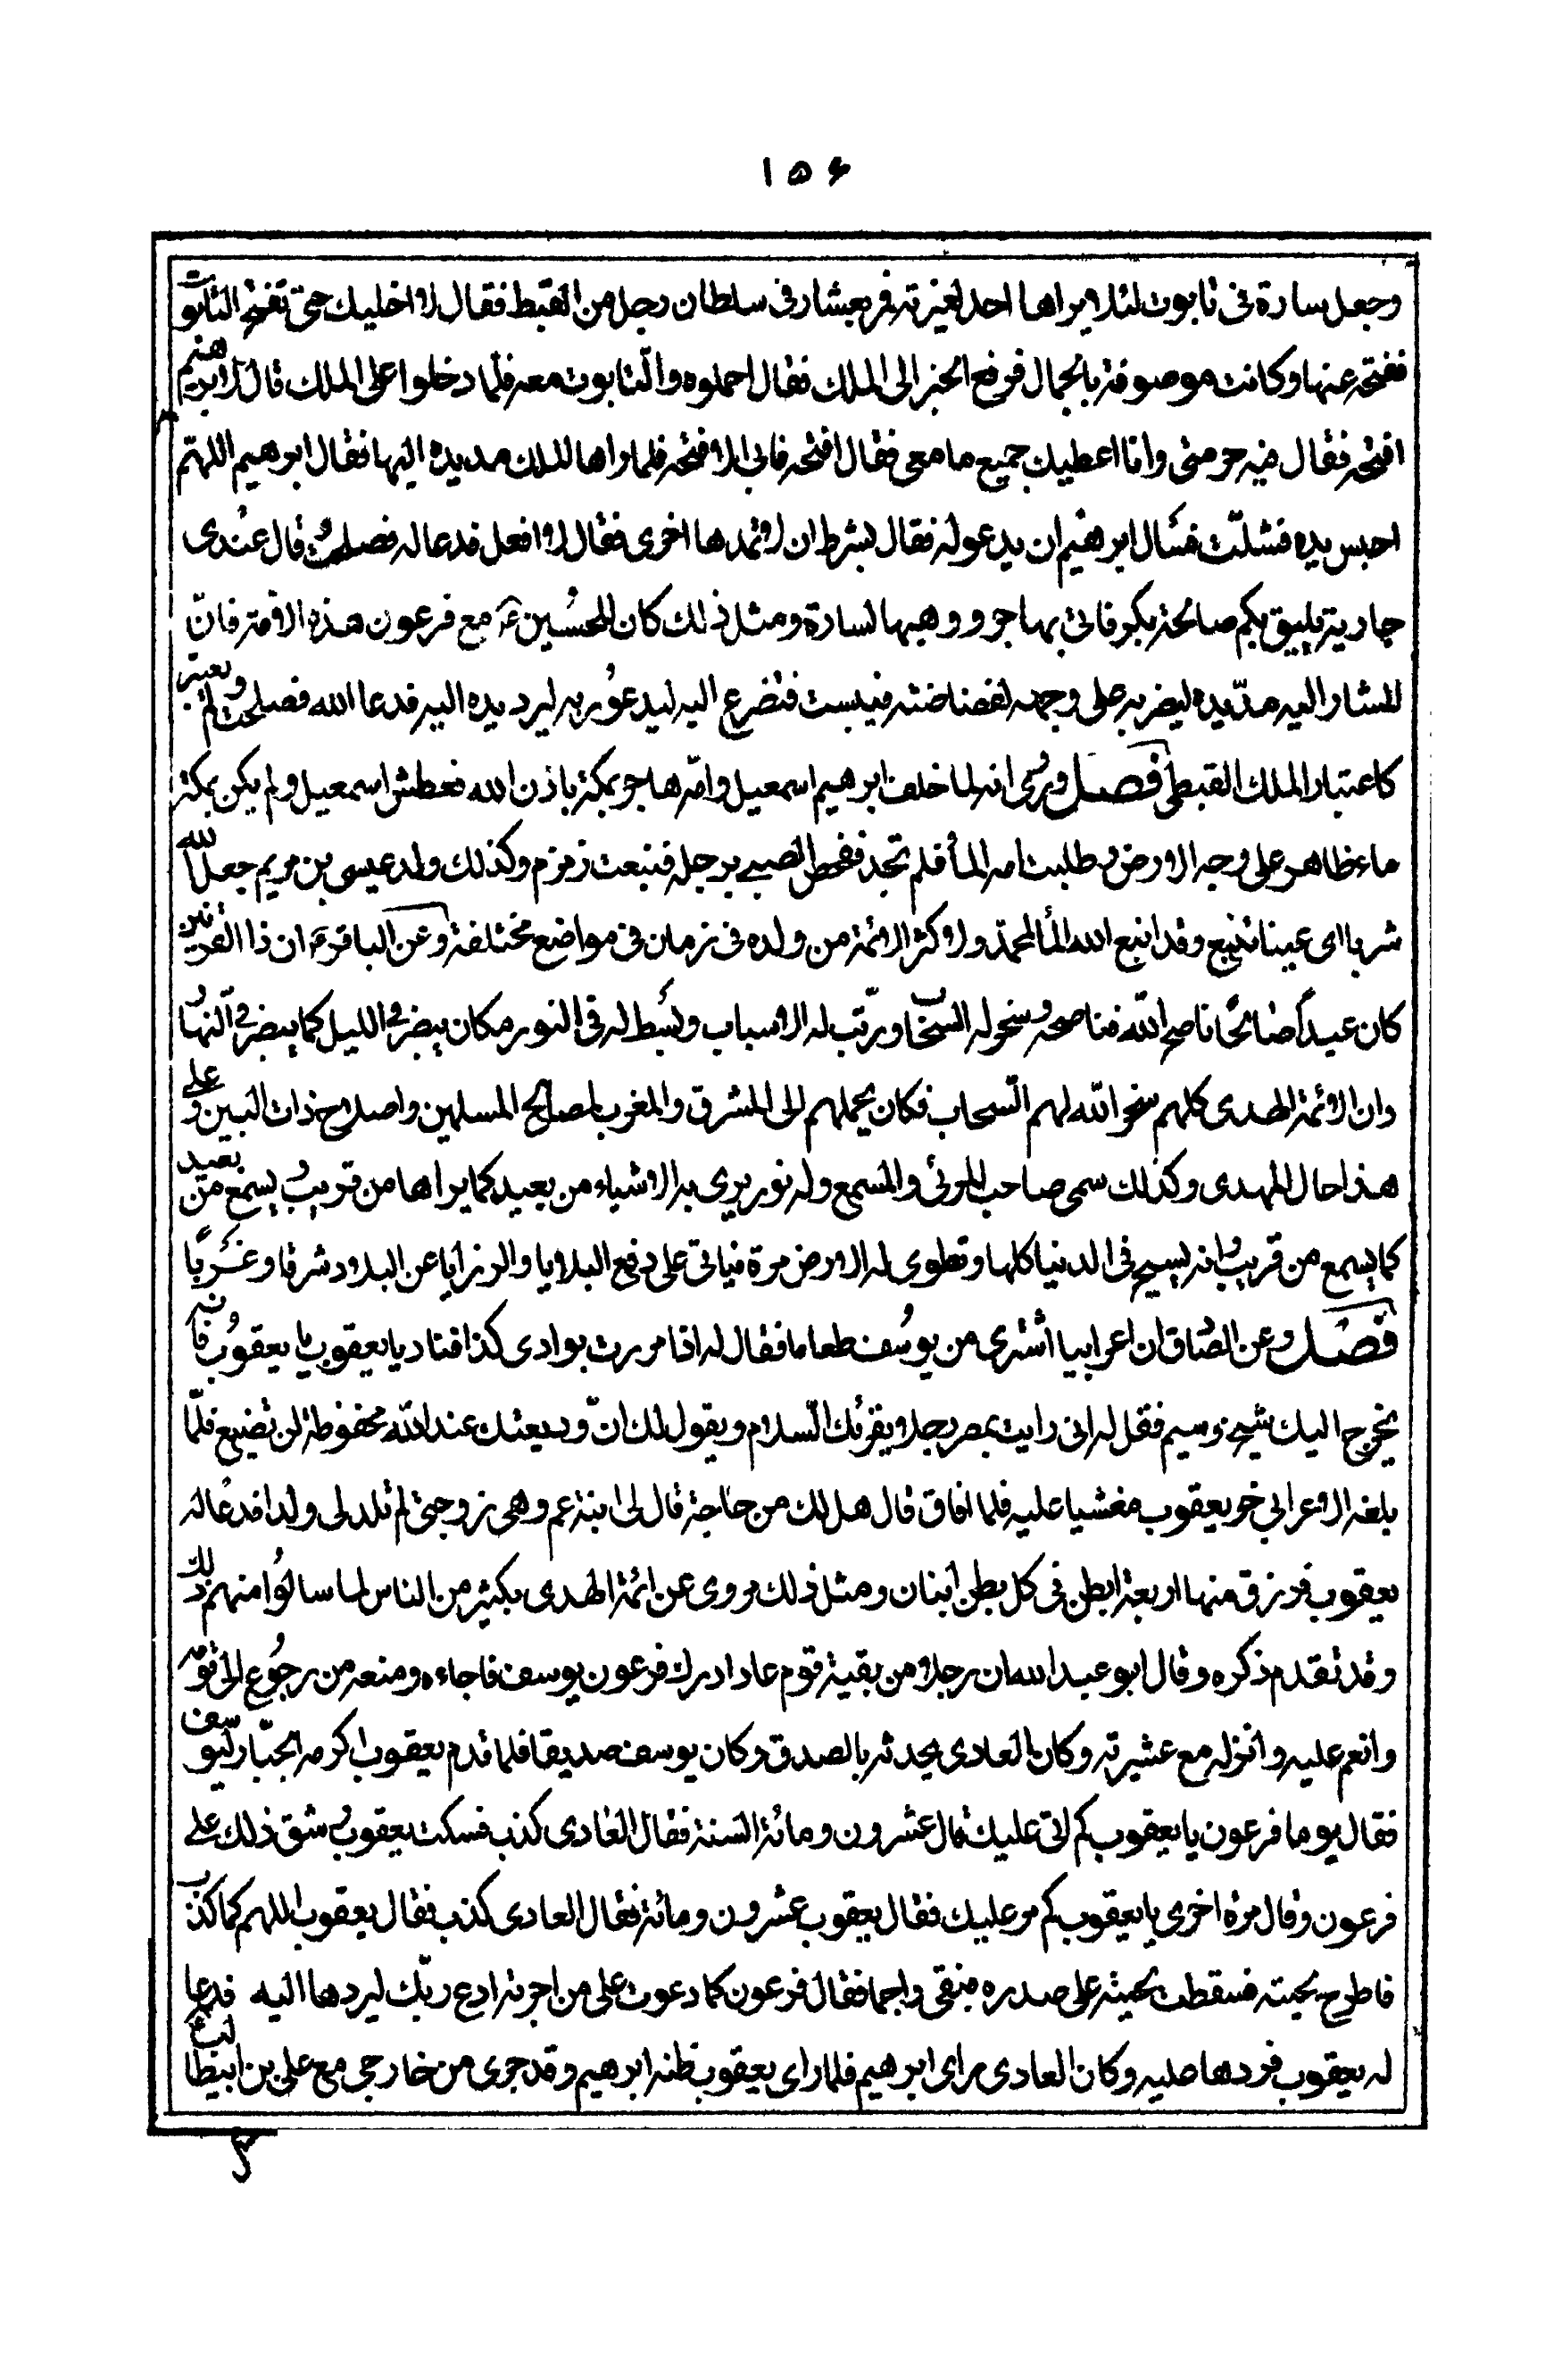 ۱۵۶
وجعل سارة فى تابوت لئلا يراها احد لغيرته فمر بعشار فى سلطان رجل من القبط فقال لا اخليك حتى تفتح التابوت
ففتحه عنها وكانت موصوفة بالجمال فرفع الخبر الى الملك فقال احملوه والتابوت معه فلما دخلوا على الملك قال لابرهيم
افتحه فقال فيه حرمتى وانا اعطيك جميع ما معى فقال افتحه فابى الا فتحه فلما راها الملك مد يده اليها فقال ابرهيم اللهم
احبس يده فشلّت فسأل ابرهيم ان يدعو له فقال بشرط ان لا تمدها اخرى فقال لا افعل فدعا له فصلحت قال عندى
جارية يليق بكم صالحة بكر فاتى بهاجر ووهبها لسارة ومثل ذلك كان للحسين ع مع فرعون هذه الامة فان
المشار اليه مدّ يده ليضربه على وجهه فيبست فتضرع اليه ليدعو ربه ليرد يده اليه فدعا الله فصلحت ولم يعتبر
كاعتبار الملك القبطى فصل وروى انه لما خلف ابرهيم اسمعيل وامه هاجر بمكة باذن الله فعطش اسمعيل ولم يكن بمكة
ماء ظاهر على وجه الارض وطلبت امه الماء فلم تجد ففحص الصبى برجله فنبعت زمزم وكذلك ولد عيسى بن مريم جعل الله
شربا اى عينا تنبع وقد انبع الله الماء لمحمد ولاكثر الائمة من ولده فى زمان فى مواضع مختلفة وعن الباقر ع ان ذا القرنين
كان عبداً صالحاً ناصح الله فناصحه وسخر له السحاب ورتّب له الاسباب وبسط له فى النور فكان يبصر فى الليل كما يبصر فى النهار
وان الائمة الهدى كلهم سخر الله لهم السحاب فكان يحملهم الى المشرق والمغرب لمصالح المسلمين واصلاح ذات البين وعلى
هذا حال المهدى وكذلك سمى صاحب المرئى والمسمع وله نور يرى به الاشياء من بعيد كما يراها من قريب ويسمع من بعيد
كما يسمع من قريب وانه يسيح فى الدنيا كلها وتطوى له الارض مرة فياتى على دفع البلايا والرزايا عن البلاد شرقا وغربًا
فصل وعن الصادق ان اعرابيا اشترى من يوسف طعاما فقال له اذا مررت بوادى كذا فناد يا يعقوب يا يعقوب فانه
يخرج اليك شيخ وسيم فقل له انى رايت بمصر رجلا يقرئك السلام ويقول لك انّ وديعتك عند الله محفوظة لن تضيع فلمّا
بلغه الاعرابى خر يعقوب مغشيا عليه فلما افاق قال هل لك من حاجة قال لى ابنة عم وهى زوجتى لم تلد لى ولدا فدعا له
يعقوب فرزق منها اربعة ابطن فى كل بطن ابنان ومثل ذلك مروى عن ائمة الهدى بكثير من الناس لما سالوا منهم ذلك
وقد تقدم ذكره وقال ابو عبد الله ان رجلا من بقية قوم عاد ادرك فرعون يوسف فاجاءه ومنعه من رجوع الى قومه
وانعم عليه وانزله مع عشيرته وكان العادى يحدثه بالصدق وكان يوسف صديقا فلما قدم يعقوب اكرمه الجبّار ليوسف
فقال يوما فرعون يا يعقوب كم اتى عليك قال عشرون ومائة السنة فقال العادى كذب فسكت يعقوب وشق ذلك على
فرعون وقال مرة اخرى يا يعقوب كم مر عليك فقال يعقوب عشرون ومائة فقال العادى كذب فقال يعقوب اللهم كما كذب
فاطرح لحيته فسقطت لحيته على صدره فبقى واجما فقال فرعون كما دعوت على من اجرته ادع ربّك ليردها اليه فدعا
له يعقوب فردها عليه وكان العادى راى ابرهيم فلما راى يعقوب ظنه ابرهيم وقد جرى من خارجى مع على بن ابيطالب